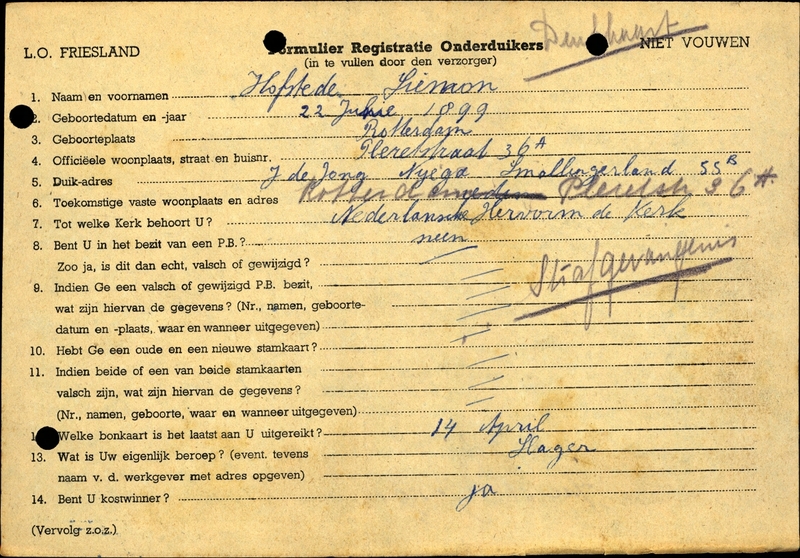 L.O. FRIESLAND
Formulier Registratie Onderduikers
NIET VOUWEN
(in te vullen door den verzorger)
1. Naam en voornamen Hofstede Siemon
2. Geboortedatum en -jaar 22 Julie 1899
3. Geboorteplaats Rotterdam
4. Officiëele woonplaats, straat en huisnr. Pleretstraat 36A
5. Duik-adres J de Jong Nyega Smallingerland 55B
6. Toekomstige vaste woonplaats en adres Rotterdam Pleretstr 36A.
7. Tot welke Kerk behoort U? Nederlansche Hervormde Kerk
8. Bent U in het bezit van een P.B.? neen
Zoo ja, is dit dan echt, valsch of gewijzigd?
Strafgevangenis
9. Indien Ge een valsch of gewijzigd P.B. bezit,
wat zijn hiervan de gegevens? (Nr., namen, geboorte-
datum en -plaats, waar en wanneer uitgegeven)
10. Hebt Ge een oude en een nieuwe stamkaart?
11. Indien beide of een van beide stamkaarten
valsch zijn, wat zijn hiervan de gegevens?
(Nr., namen, geboorte, waar en wanneer uitgegeven)
Welke bonkaart is het laatst aan U uitgereikt? 14 April
13. Wat is Uw eigenlijk beroep? (event. tevens Slager
naam v. d. werkgever met adres opgeven)
14. Bent U kostwinner? ja
(Vervolg z.o.z.)